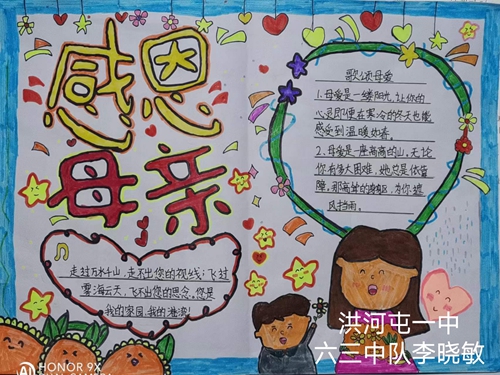 感恩
母亲
歌颂母爱
1.母爱是一缕阳光,让你的
心灵即便在寒冷的冬天也能
感受到温暖如春。
2.母爱是一座高高的山,无论
你有多大困难,她总是依靠
障,那高耸的 为你遮
风挡雨。
走过万水千山,走不出您的视线;飞过
雾海云天,飞不出您的思念,您是
我的家园,我的港湾!
洪河屯一中
六三中队李晓敏
HONOR 9X